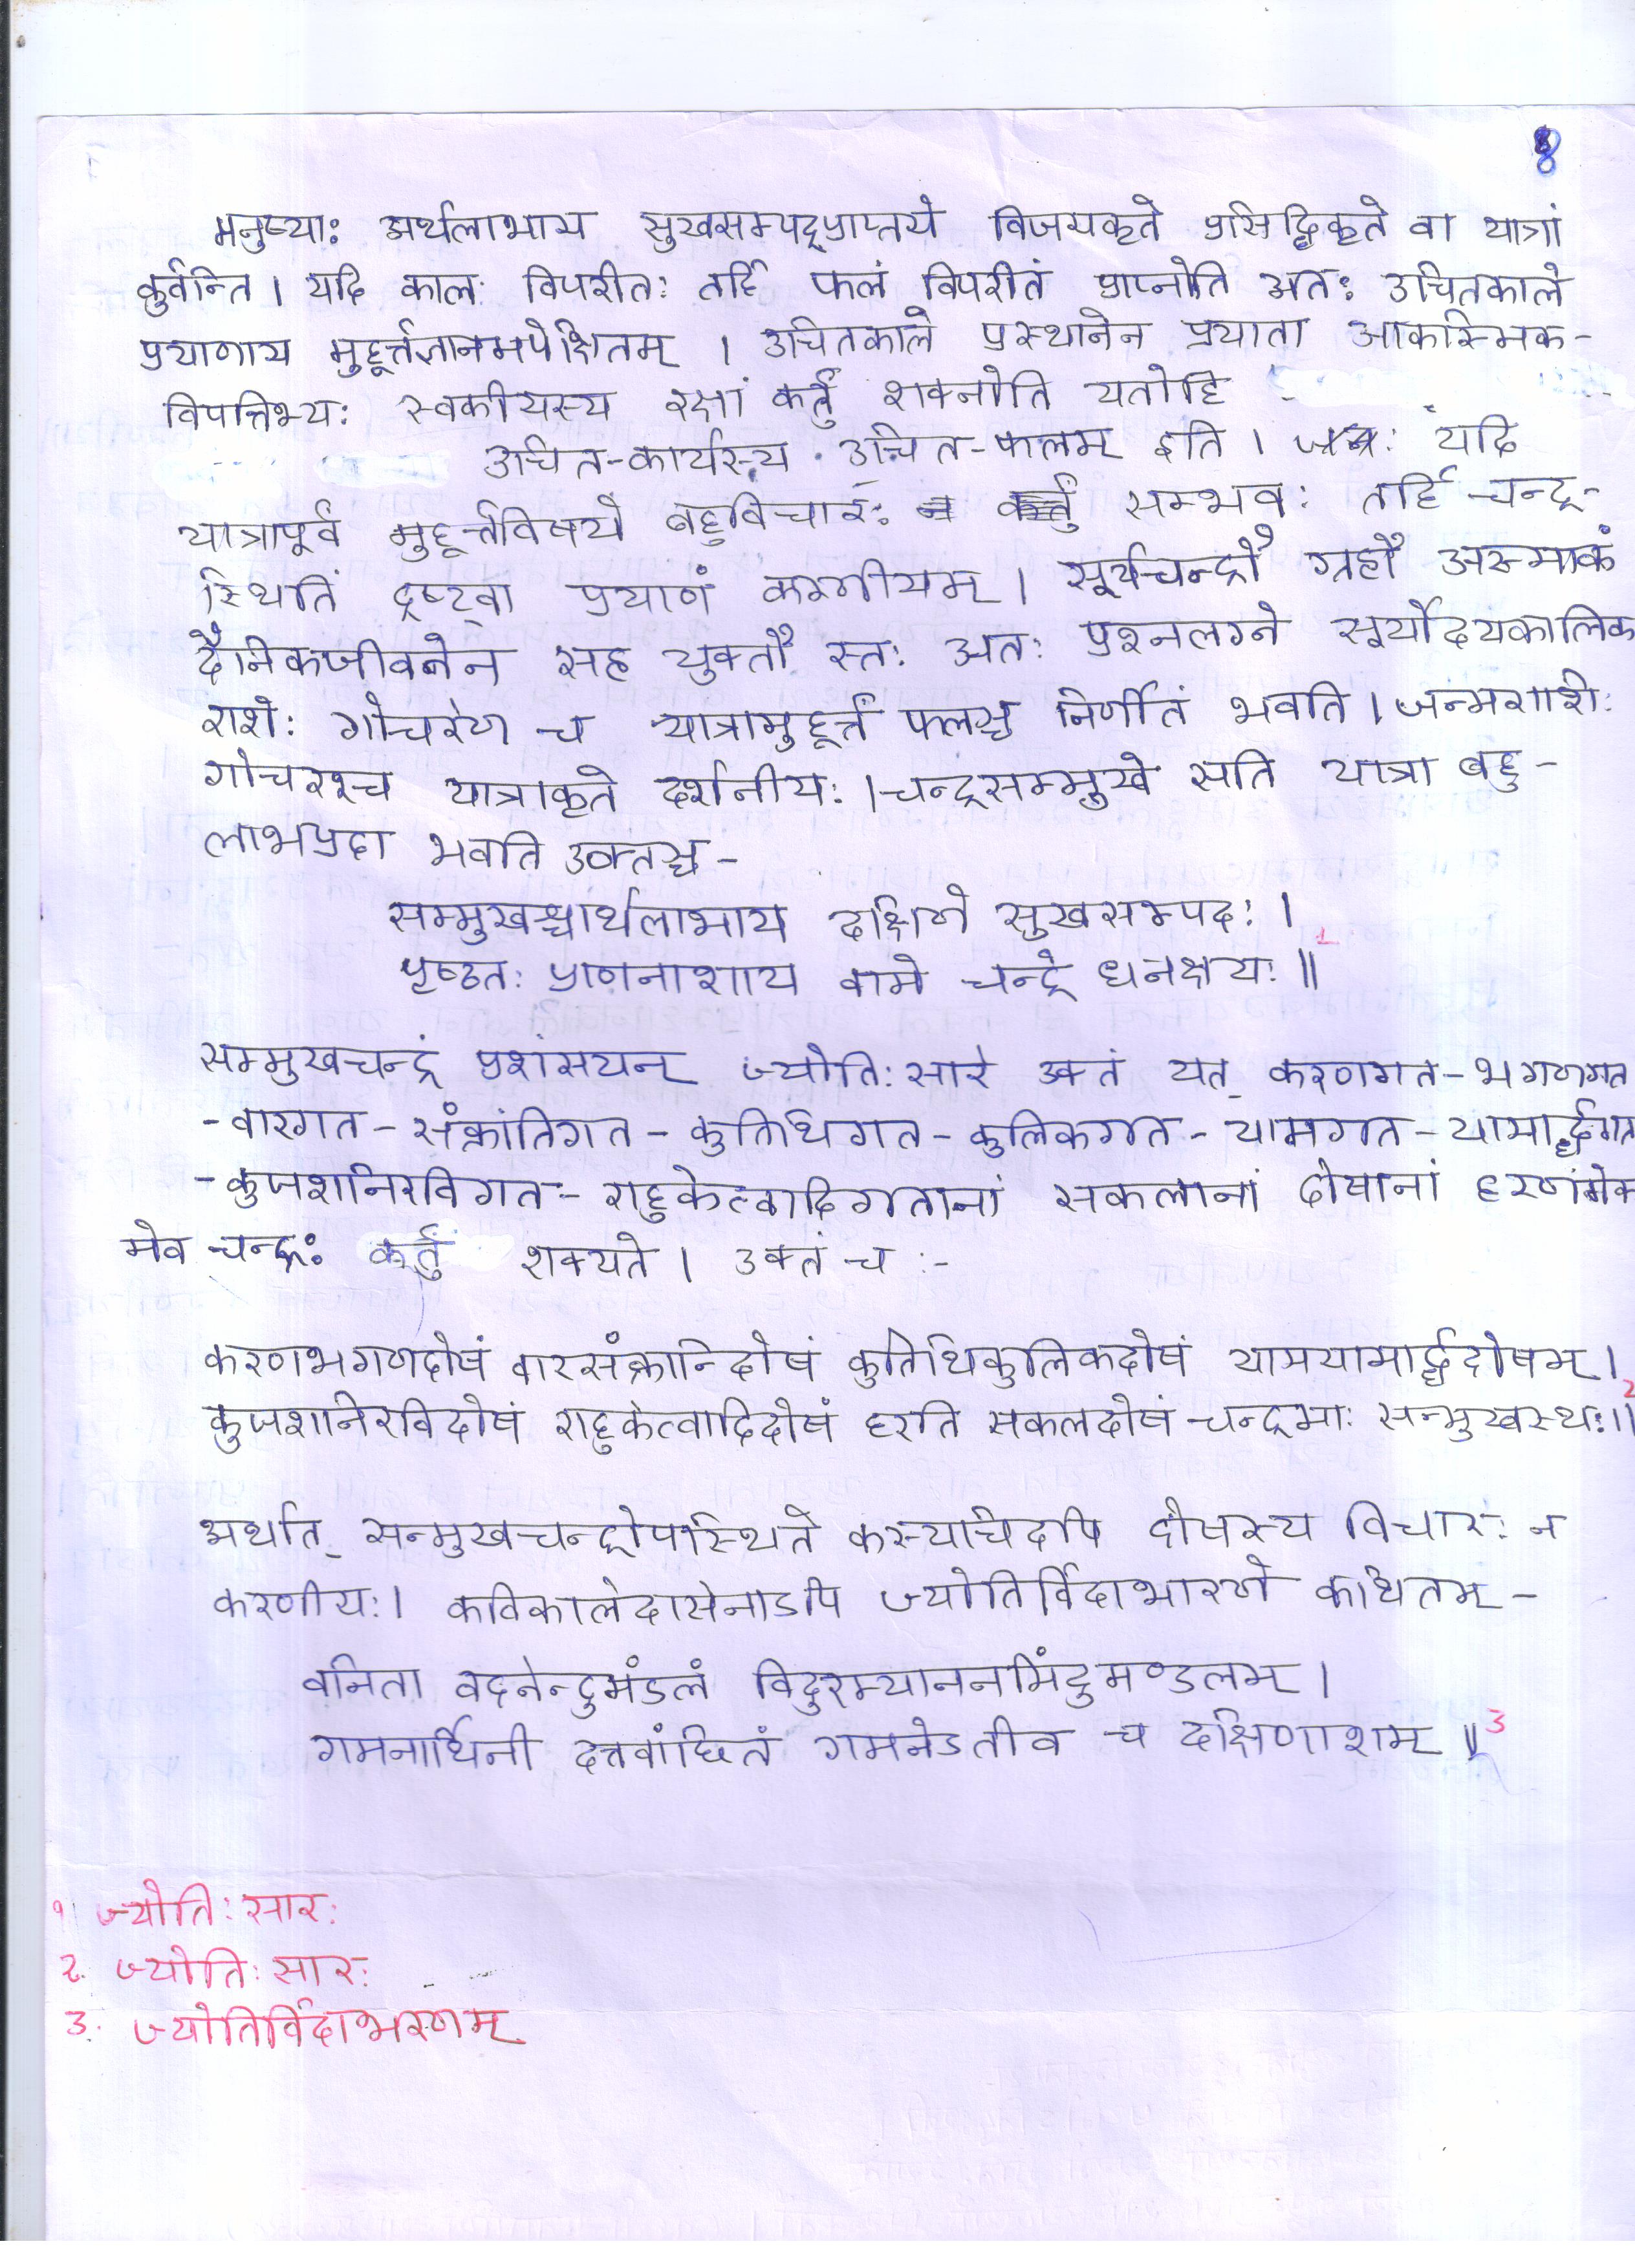 8
मनुष्याः अर्थलाभाय सुखसम्पद्प्राप्तये विजयकृते प्रसिद्धिकृते वा यात्रां
कुर्वन्ति । यदि कालः विपरीतः तर्हि फलं विपरीतं प्राप्नोति अतः उचितकाले
प्रयाणाय मुहूर्त्तज्ञानमपेक्षितम् । उचितकाले प्रस्थानेन प्रयाता आकस्मिक-
विपत्तिभ्यः स्वकीयस्य रक्षां कर्तुं शक्नोति यतोहि
उचित-कार्यस्य उचित-फलम् इति । यदि
यात्रापूर्वं मुहूर्त्तविषये बहुविचारः सम्भवः तर्हि चन्द्र-
स्थितिं दृष्ट्वा प्रयाणं करणीयम् । सूर्यचन्द्रौ ग्रहौ अस्माकं
दैनिकजीवनेन सह युक्तौ स्तः अतः प्रश्नलग्ने सूर्योदयकालिक
राशेः गोचरेण च यात्रामुहूर्त्तं फलञ्च निर्णीतं भवति । जन्मराशेः
गोचरश्च यात्राकृते दर्शनीयः । चन्द्रसम्मुखे सति यात्रा बहु-
लाभप्रदा भवति उक्तञ्च -
सम्मुखश्चार्थलाभाय दक्षिणे सुखसम्पदः ।
पृष्ठतः प्राणनाशाय वामे चन्द्रे धनक्षयः ॥ 1
सम्मुखचन्द्रं प्रशंसयन् ज्योतिःसारे उक्तं यत् करणगत-भगणगत
-वारगत-संक्रांतिगत-कुतिथिगत-कुलिकगत-यामगत-यामार्द्धगत
-कुजशनिरविगत-राहुकेत्वादिगतानां सकलानां दोषानां हरणंमेक
मेव चन्द्रः कर्तुं शक्यते । उक्तं च :-
करणभगणदोषं वारसंक्रान्तिदोषं कुतिथिकुलिकदोषं यामयामार्द्धदोषम् ।
कुजशनिरविदोषं राहुकेत्वादिदोषं हरति सकलदोषं चन्द्रमाः सन्मुखस्थः ॥ 2
अर्थात् सन्मुखचन्द्रोपस्थिते कस्यचिदपि दोषस्य विचारः न
करणीयः । कविकालिदासेनाऽपि ज्योतिर्विदाभारणे कथितम् -
वनिता वदनेन्दुमंडलं विदुरम्याननमिंदुमण्डलम् ।
गमनार्थिनी दत्तवांछितं गमनेऽतीव च दक्षिणाशम् ॥ 3
१ ज्योतिःसारः
२. ज्योतिःसारः
3. ज्योतिर्विदाभरणम्